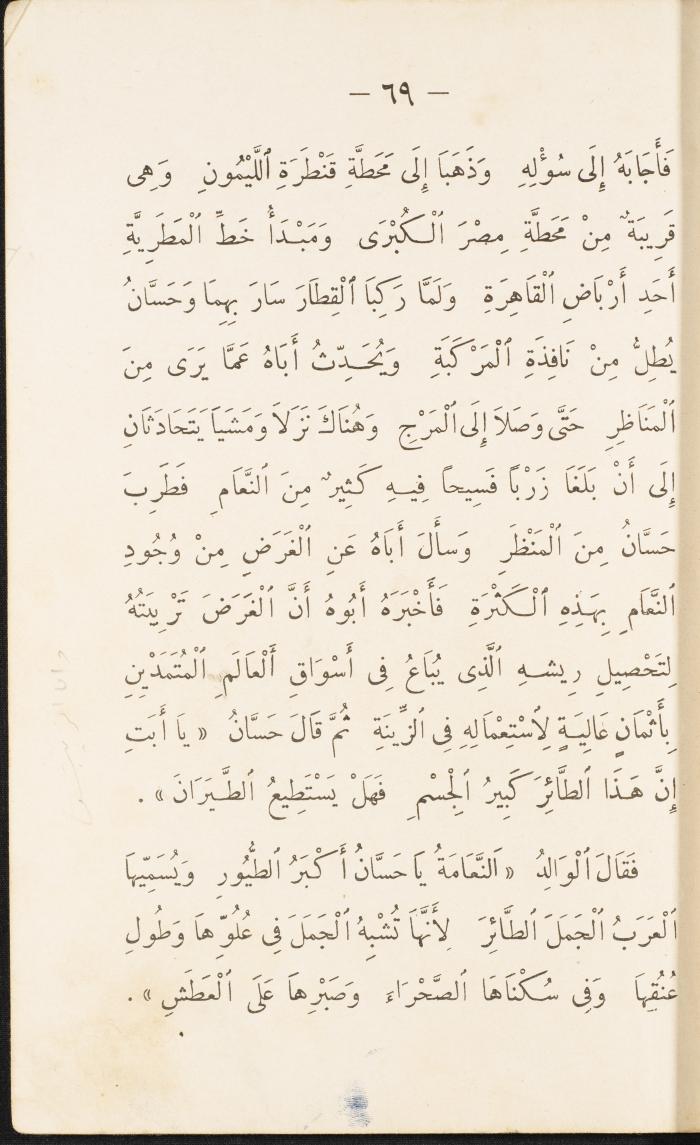 — ٦٩ —
فَأَجَابَهُ إِلَى سُؤْلِهِ وَذَهَبَا إِلَى مَحَطَّةِ قَنْطَرَةِ ٱللَّيْمُونِ وَهِى
قَرِيبَةٌ مِنْ مَحَطَّةِ مِصْرَ ٱلْكُبْرَى وَمَبْدَأُ خَطِّ ٱلْمَطَرِيَّةِ
أَحَدِ أَرْبَاضِ ٱلْقَاهِرَةِ وَلَمَّا رَكِبَا ٱلْقِطَارَ سَارَ بِهِمَا وَحَسَّانُ
يُطِلُّ مِنْ نَافِذَةِ ٱلْمَرْكَبَةِ وَيُحَدِّثُ أَبَاهُ عَمَّا يَرَى مِنَ
ٱلْمَنَاظِرِ حَتَّى وَصَلَا إِلَى ٱلْمَرْجِ وَهُنَاكَ نَزَلَا وَمَشَيَا يَتَحَادَثَانِ
إِلَى أَنْ بَلَغَا زَرْبًا فَسِيحًا فِيهِ كَثِيرٌ مِنَ ٱلنَّعَامِ فَطَرِبَ
حَسَّانُ مِنَ ٱلْمَنْظَرِ وَسأَلَ أَبَاهُ عَنِ ٱلْغَرَضِ مِنْ وُجُودِ
ٱلنَّعَامِ بِهَذِهِ ٱلْكَثْرَةِ فَأَخْبَرَهُ أَبُوهُ أَنَّ ٱلْغَرَضَ تَرْبِيَتُهُ
لِتَحْصِيلِ رِيشِهِ ٱلَّذِى يُبَاعُ فِى أَسْوَاقِ ٱلْعَالَمِ ٱلْمُتَمَدْيِنِ
بِأَثْمَانٍ عَالِيَةٍ لِٱسْتِعْمَالِهِ فِى ٱلزِّينَةِ ثُمَّ قَالَ حَسَّانُ « يَا أَبَتِ
إِنَّ هَذَا ٱلطَّائِرَ كَبِيرُ ٱلْجِسْمِ فَهَلْ يَسْتَطِيعُ ٱلطَّيَرَانَ » .
فَقَالَ ٱلْوَالِدُ « ٱلنَّعَامَةُ يَا حَسَّانُ أَكْبَرُ ٱلطُّيُورِ وَيُسَمِّيهَا
ٱلْعَرَبُ ٱلْجَمَلَ ٱلطَّائِرَ لِأَنَّهَا تُشْبِهُ ٱلْجَمَلَ فِى عُلُوِّهَا وَطُولِ
عُنُقِهَا وَفِى سُكْنَاهَا ٱلصَّحْرَاءَ وَصَبْرِهَا عَلَى ٱلْعَطَشِ » .